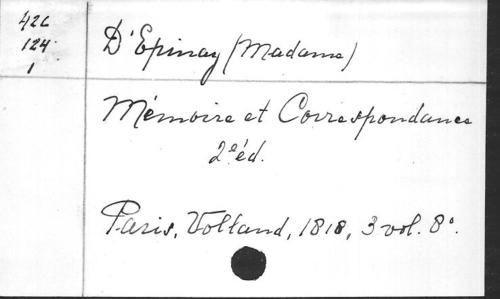 426
124
1
D'Epinay (Madame)
Mémoire et Correspondance
2e éd.
Paris, Volland, 1818, 3 vol. 8°.